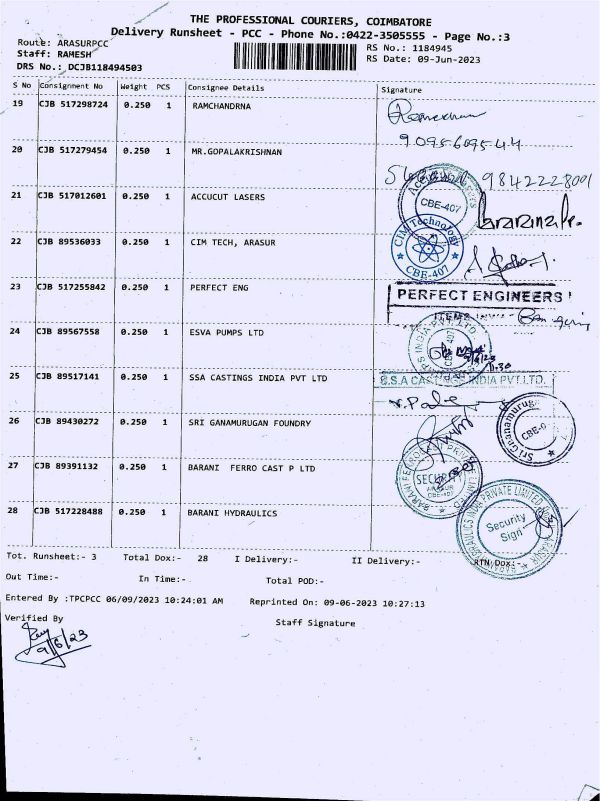 THE PROFESSIONAL COURIERS, COIMBATORE
Delivery Runsheet - PCC - Phone No.:0422-3505555 - Page No.:3
Route: ARASURPCC
RS No.: 1184945
Staff: RAMESH
RS Date: 09-Jun-2023
DRS No.: DCJB118494503
S No Consignment No Weight PCS Consignee Details Signature
19 CJB 517298724 0.250 1 RAMCHANDRNA
9095609544
20 CJB 517279454 0.250 1 MR.GOPALAKRISHNAN
9842228001
21 CJB 517012601 0.250 1 ACCUCUT LASERS
CBE-407
22 CJB 89536033 0.250 1 CIM TECH, ARASUR
CIM Technology
CBE-407
23 CJB 517255842 0.250 1 PERFECT ENG
PERFECT ENGINEERS
24 CJB 89567558 0.250 1 ESVA PUMPS LTD
25 CJB 89517141 0.250 1 SSA CASTINGS INDIA PVT LTD
S.S.A CASTINGS INDIA PVT.LTD.
26 CJB 89430272 0.250 1 SRI GANAMURUGAN FOUNDRY
Sri Gnanamurugan
CBE-
27 CJB 89391132 0.250 1 BARANI FERRO CAST P LTD
SECURITY
ARASUR
CBE-407
28 CJB 517228488 0.250 1 BARANI HYDRAULICS
BARANI HYDRAULICS INDIA PRIVATE LIMITED
Security
Sign
Tot. Runsheet:- 3 Total Dox:- 28 I Delivery:- II Delivery:- RTN Dox:-
Out Time:- In Time:- Total POD:-
Entered By :TPCPCC 06/09/2023 10:24:01 AM Reprinted On: 09-06-2023 10:27:13
Verified By Staff Signature
9/6/23